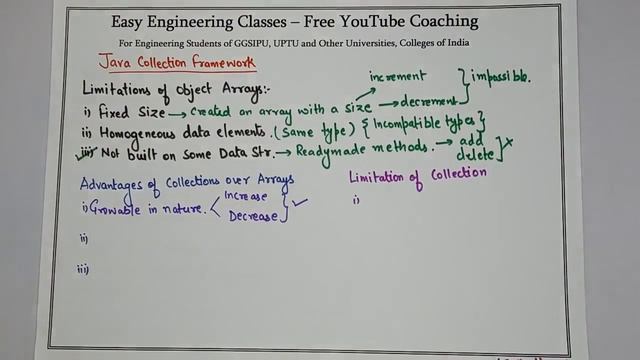 Easy Engineering Classes – Free YouTube Coaching
For Engineering Students of GGSIPU, UPTU and Other Universities, Colleges of India
Java Collection Framework
Limitations of Object Arrays:-
increment
impossible.
i) Fixed Size → Created an array with a size → decrement
ii) Homogeneous data elements. (Same type) { Incompatible types }
iii) Not built on some Data Str. → Readymade methods. → add
delete
Advantages of Collections over Arrays
Limitation of Collection
i) Growable in nature. < Increase
Decrease } ✓
i)
ii)
iii)